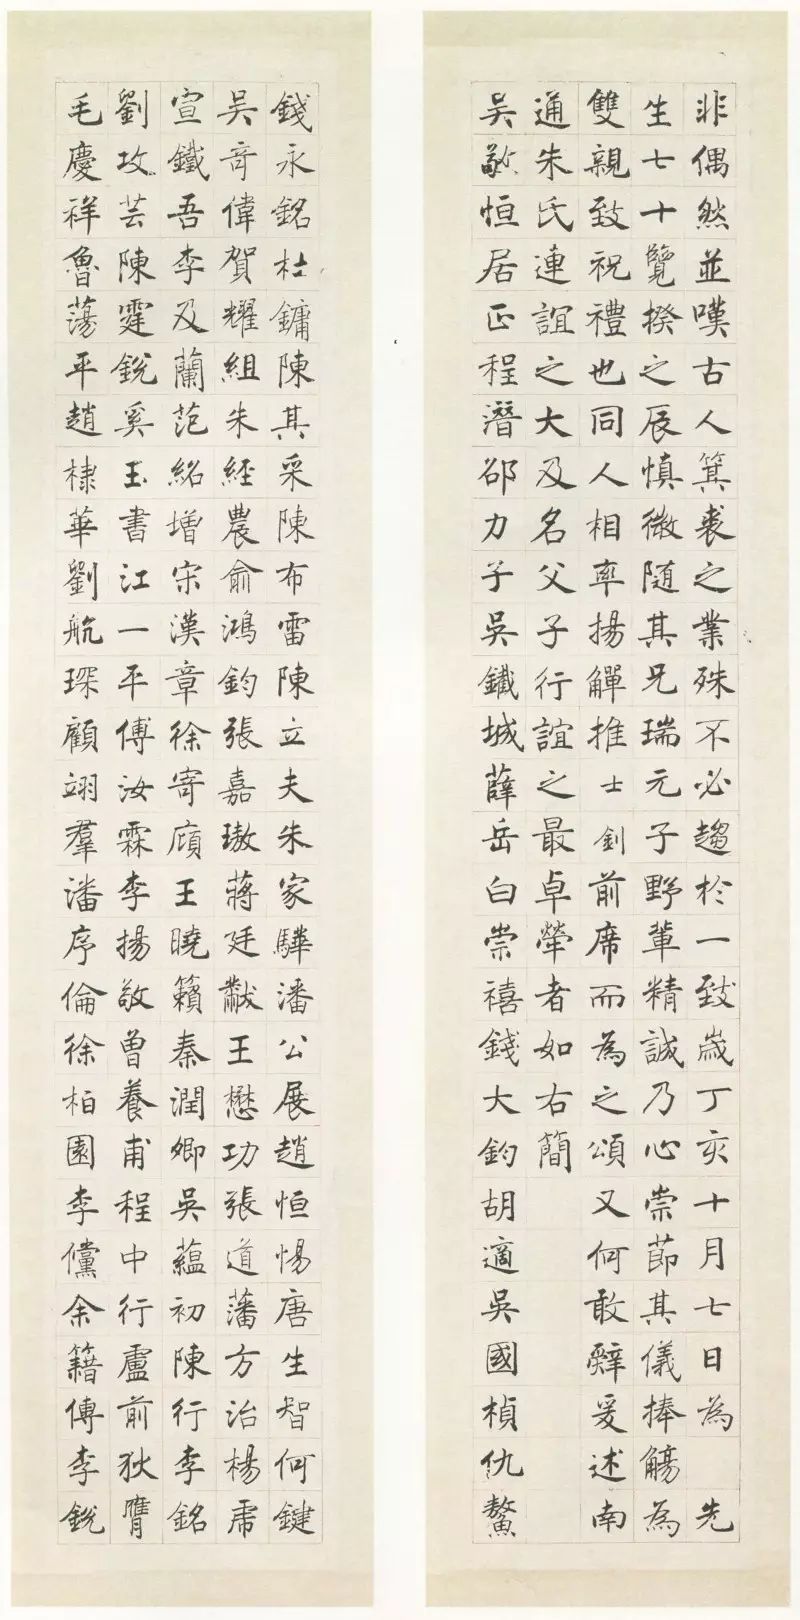 非偶然並嘆古人箕裘之業殊不必趨於一致歲丁亥十月七日為先
生七十覽揆之辰慎微隨其兄瑞元子野輩精誠乃心崇節其儀捧觴為
雙親致祝禮也同人相率揚觶推士釗前席而為之頌又何敢辭爰述南
通朱氏連誼之大及名父子行誼之最卓犖者如右簡
吳敬恒居正程潛邵力子吳鐵城薛岳白崇禧錢大鈞胡適吳國楨仇鰲
錢永銘杜鏞陳其采陳布雷陳立夫朱家驊潘公展趙恒惕唐生智何鍵
吳奇偉賀耀組朱經農俞鴻鈞張嘉璈蔣廷黻王懋功張道藩方治楊虎
宣鐵吾李及蘭范紹增宋漢章徐寄廎王曉籟秦潤卿吳蘊初陳行李銘
劉攻芸陳霆銳奚玉書江一平傅汝霖李揚敬曾養甫程中行盧前狄膺
毛慶祥魯蕩平趙棣華劉航琛顧翊羣潘序倫徐柏園李儻余籍傳李銳